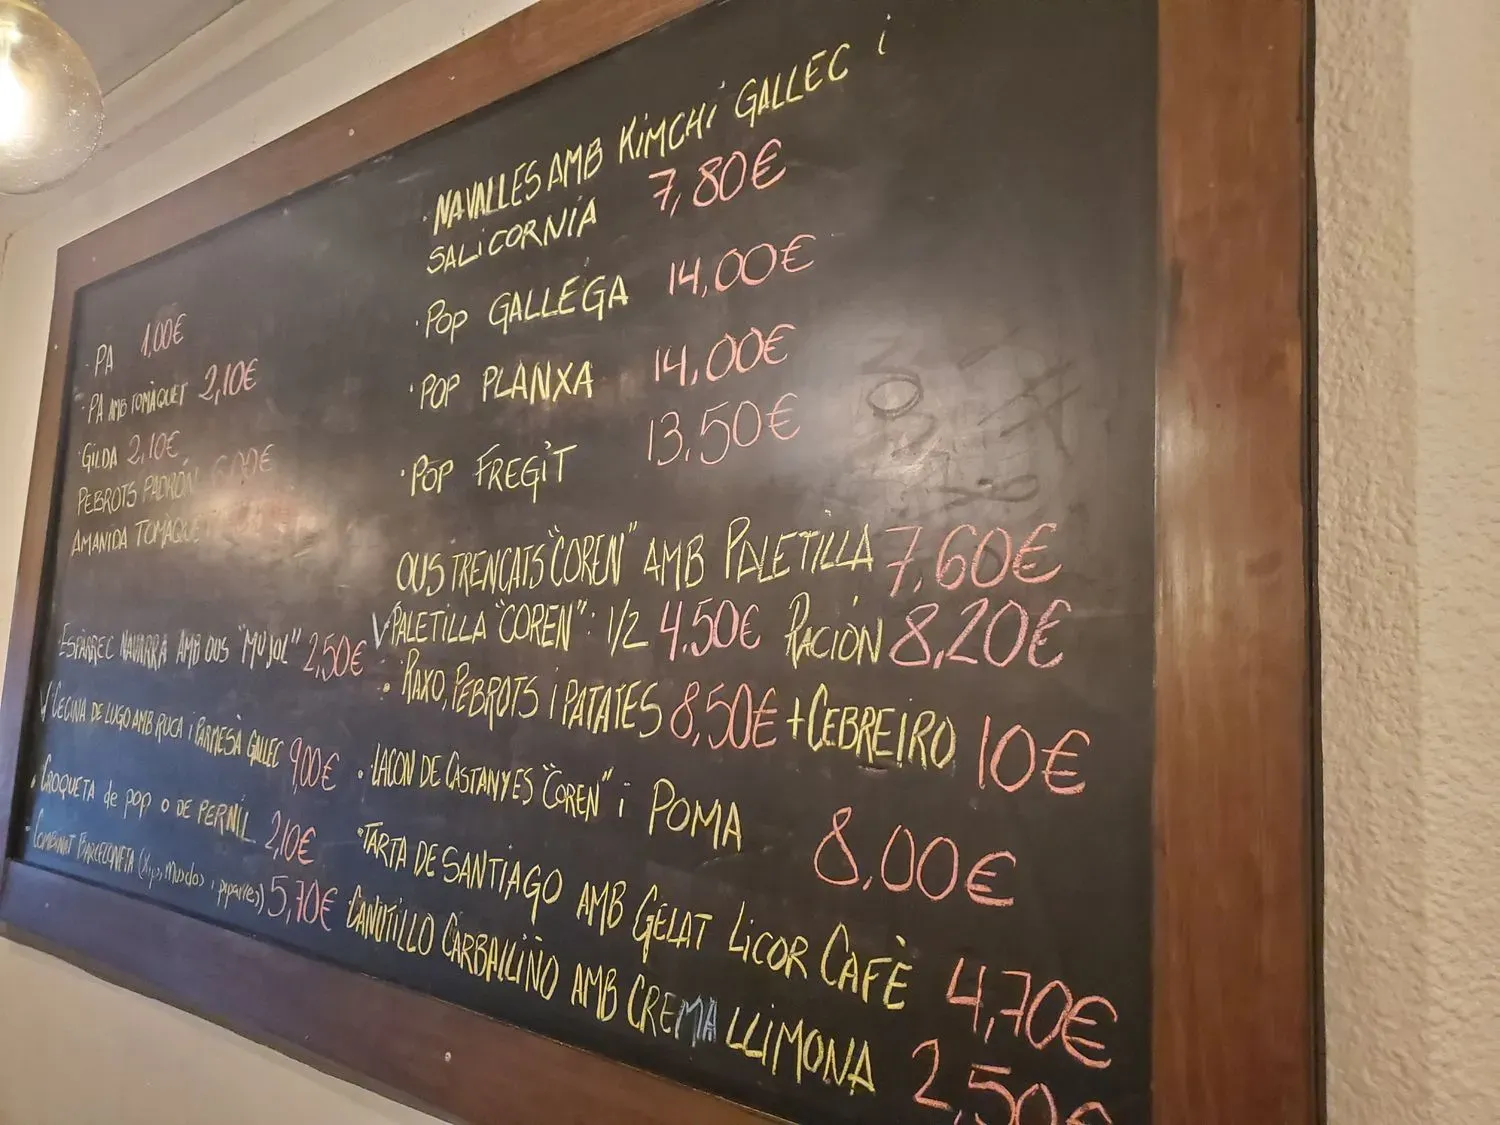 · PA 1,00€
· PA AMB TOMÀQUET 2,10€
· GILDA 2,10€
PEBROTS PADRÓN 6,00€
AMANIDA TOMÀQUET
ESPÀRREC NAVARRA AMB OUS "MUJOL" 2,50€
√ CECINA DE LUGO AMB RUCA i PARMESÀ GALLEC 9,00€
· CROQUETA de pop o DE PERNIL 2,10€
· COMBINAT BARCELONETA (Xips, Musclos i piparres) 5,70€
· NAVALLES AMB KiMCHi GALLEC i
SALiCORNIA 7,80€
· POP GALLEGA 14,00€
· POP PLANXA 14,00€
· POP FREGiT 13,50€
OUS TRENCATS "COREN" AMB PALETILLA 7,60€
√ PALETILLA "COREN": 1/2 4.50€ RACIÓN 8,20€
· RAXO, PEBROTS I PATATES 8,50€ + CEBREIRO 10€
· LACON DE CASTANYES "COREN" i POMA 8,00€
· TARTA DE SANTIAGO AMB GELAT LICOR CAFÈ 4,70€
CANUTILLO CARBALLIÑO AMB CREMA LLIMONA 2,50€